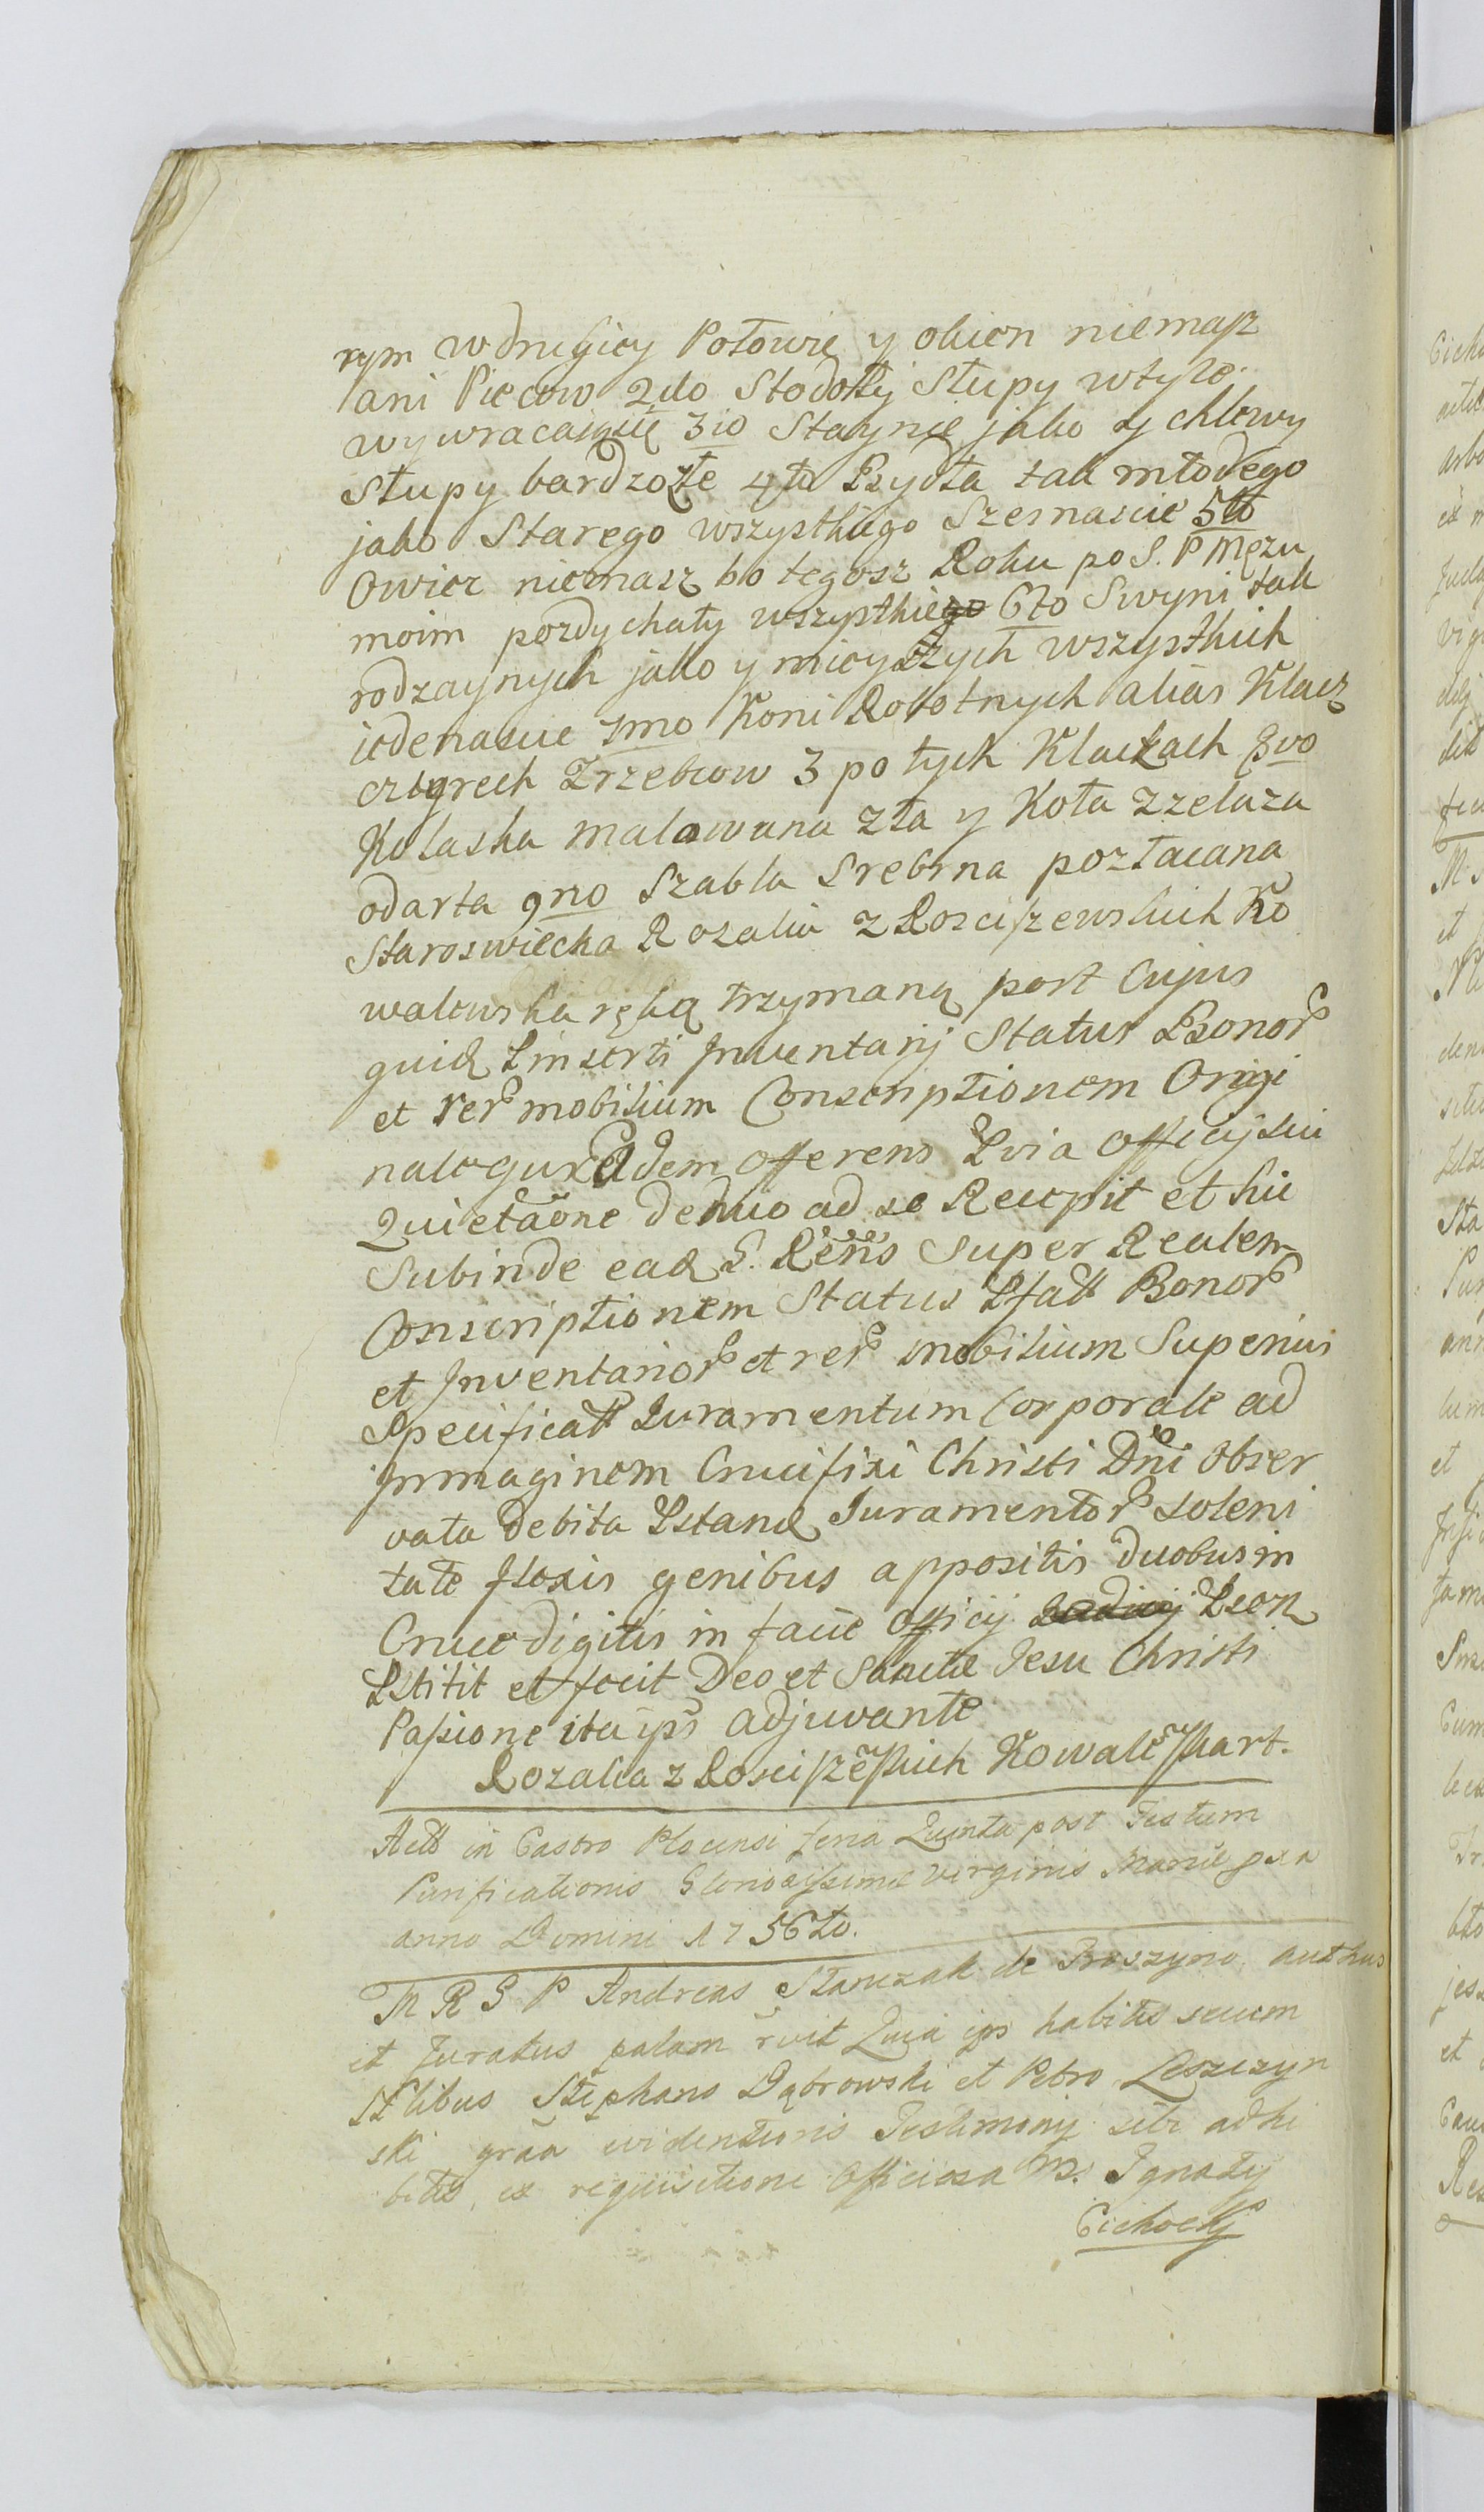 rym w drugiey Połowie y okien niemasz
ani Piecow 2do Stodoły Słupy wtyle
wywracaią się 3io Staynie jako y chlewy
Słupy bardzo złe 4to Bydła tak młodego
jako Starego wszystkiego Szesnascie 5to
Owiec niemasz bo tegosz Roku po S. P Męzu
moim pozdychały wszystkie 6to Swyni tak
rodzaynych jako y mieyszych wszystkich
iedenascie 7mo Koni Robotnych alias Klacz
cztyrech Zrzebcow 3 po tych Klaczach 8vo
Kolaska malowana zła y Koła z zelaza
odarta 9no Szabla Srebrna pozłacana
Staroswiecka Rozalia z Rosciszewskich Ko
walewska ręką trzymaną post Cujus
quid Linserti Inventarij Status Bonor
et rer mobilium Conscriptionem Origi
nale eadem offerens officij sui
Quietaōne denuo ad se Recepit et hic
Subinde ead Super Realem
Conscriptionem Status Bonor
et Inventarior et rer mobilium Superius
Specificatt Juramentum Corporale ad
Immaginem Crucifixi Christi Dni obser
vata debita Juramentor soleni
tate flexis genibus appositis duobus in
Cruce digitis in facie officij
et fecit Deo et Sanctae Jesu Christi
Passione ita ips adjuvante
Rozalia z Kowale
Actt in Castro Plocensi feria Quinta post Festum
Purificationis Gloriosissimae Virginis Mariae
anno Domini 1756to.
M R S P Andreas Stanczak de Proszyno authus
et Juratus palam rvit Quia ips habitis secum
Stephano Dąbrowski et Petro Leszczyn
ski graa evidentioris Testimony sibi adhi
bitis, ex requisitione officiosa M. Ignaty
Cichocky